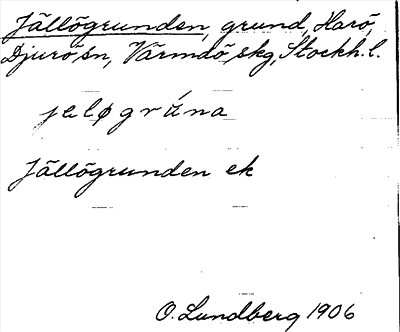 Jällögrunden, grund, Harö,
Djurö sn, Värmdö skg, Stockh. l.
jäløgrúna
Jällögrunden ek
O. Lundberg 1906